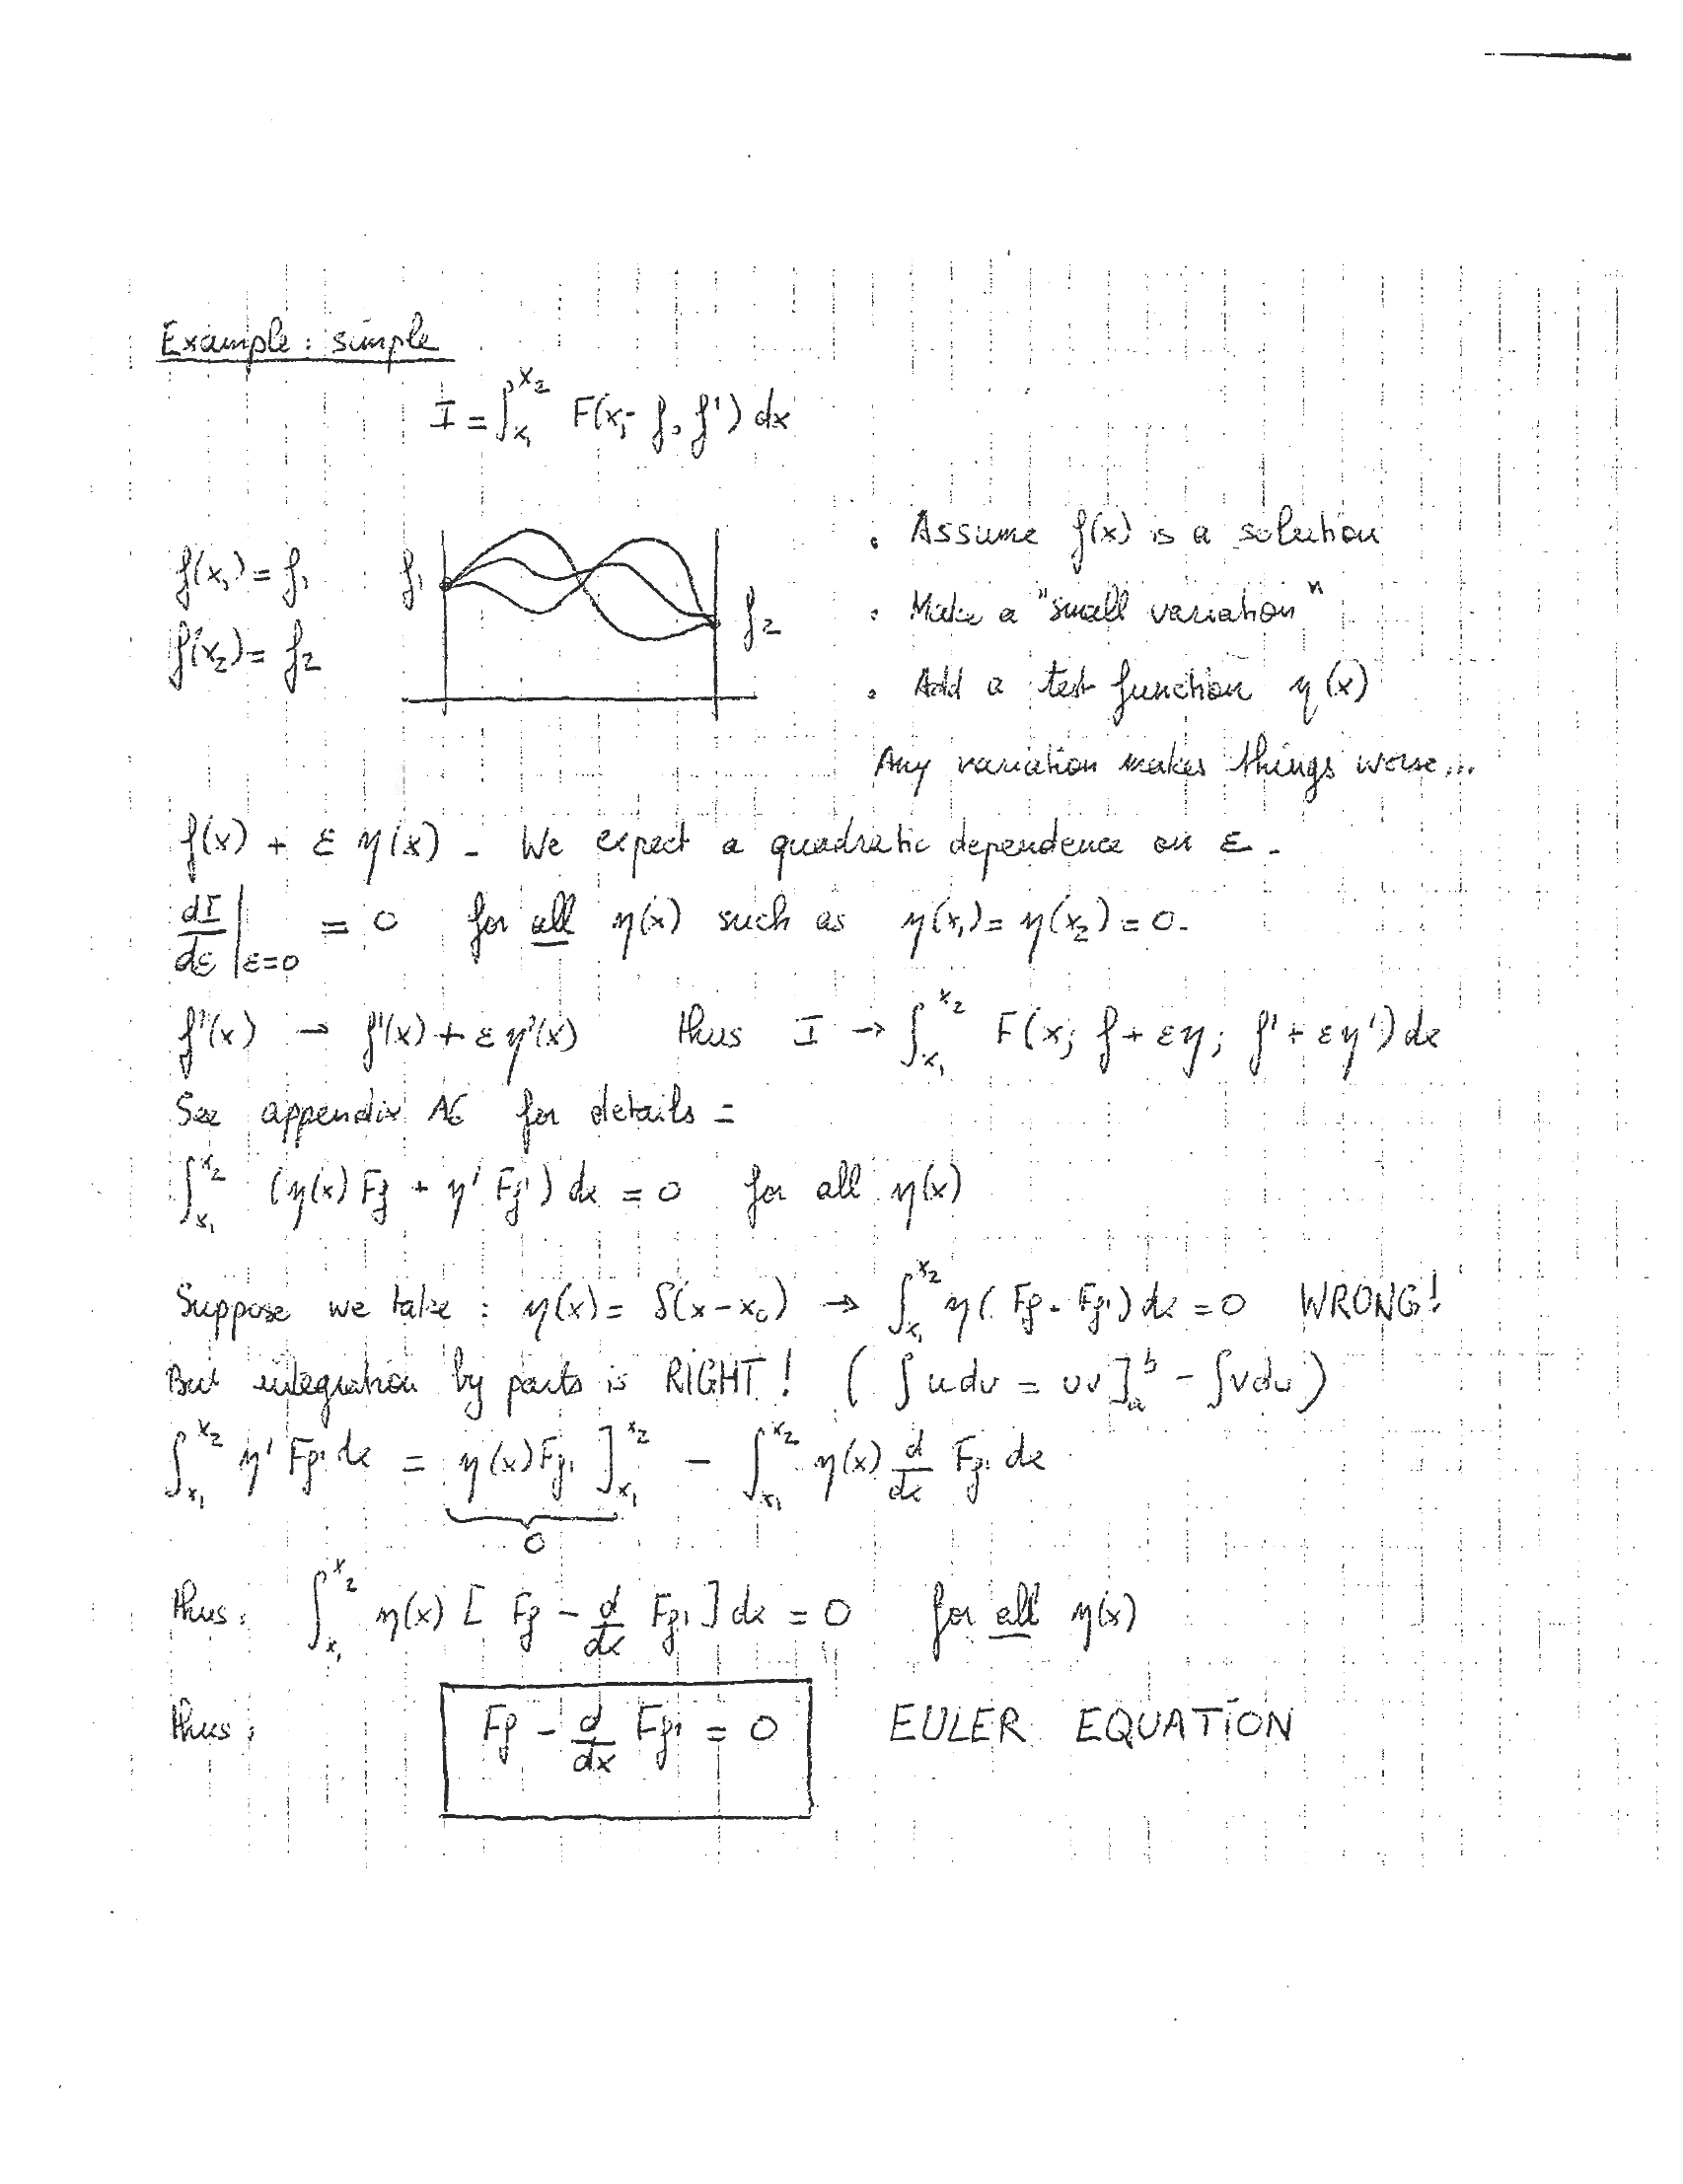 Example: simple
I = ∫_{x₁}^{x₂} F(x; f, f') dx
f(x₁) = f₁
f(x₂) = f₂
f₁
f₂
. Assume f(x) is a solution
. Make a "small variation"
. Add a test function η(x)
Any variation makes things worse...
f(x) + ε η(x) - We expect a quadratic dependence on ε -
dI/dε |_{ε=0} = 0 for all η(x) such as η(x₁) = η(x₂) = 0.
f'(x) → f'(x) + ε η'(x) thus I → ∫_{x₁}^{x₂} F(x; f + εη; f' + εη') dx
See appendix A6 for details =
∫_{x₁}^{x₂} (η(x) F_f + η' F_f') dx = 0 for all η(x)
Suppose we take : η(x) = δ(x - x₀) → ∫_{x₁}^{x₂} η( F_f - F_f') dx = 0 WRONG!
But integration by parts is RIGHT! ( ∫ u dv = uv ]_a^b - ∫ v du )
∫_{x₁}^{x₂} η' F_f' dx = η(x) F_f' ]_{x₁}^{x₂} - ∫_{x₁}^{x₂} η(x) d/dx F_f' dx
0
thus: ∫_{x₁}^{x₂} η(x) [ F_f - d/dx F_f' ] dx = 0 for all η(x)
thus: F_f - d/dx F_f' = 0 EULER EQUATION